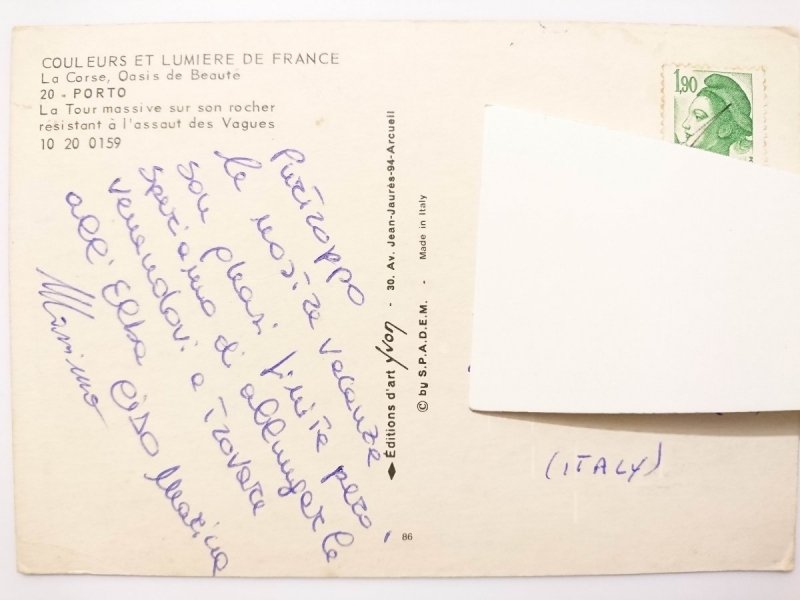 COULEURS ET LUMIERE DE FRANCE
La Corse, Oasis de Beauté
20 - PORTO
La Tour massive sur son rocher
resistant à l'assaut des Vagues
10 20 0159
Purtroppo
le nostre vacanze
son quasi finite però,
speriamo di allungarle
venendovi a trovare
all'Elba Ciao Marina
Massimo
Éditions d'art yvon - 30. Av. Jean-Jaurès-94-Arcueil
© by S.P.A.D.E.M. - Made in Italy
86
1,90
(ITALY)